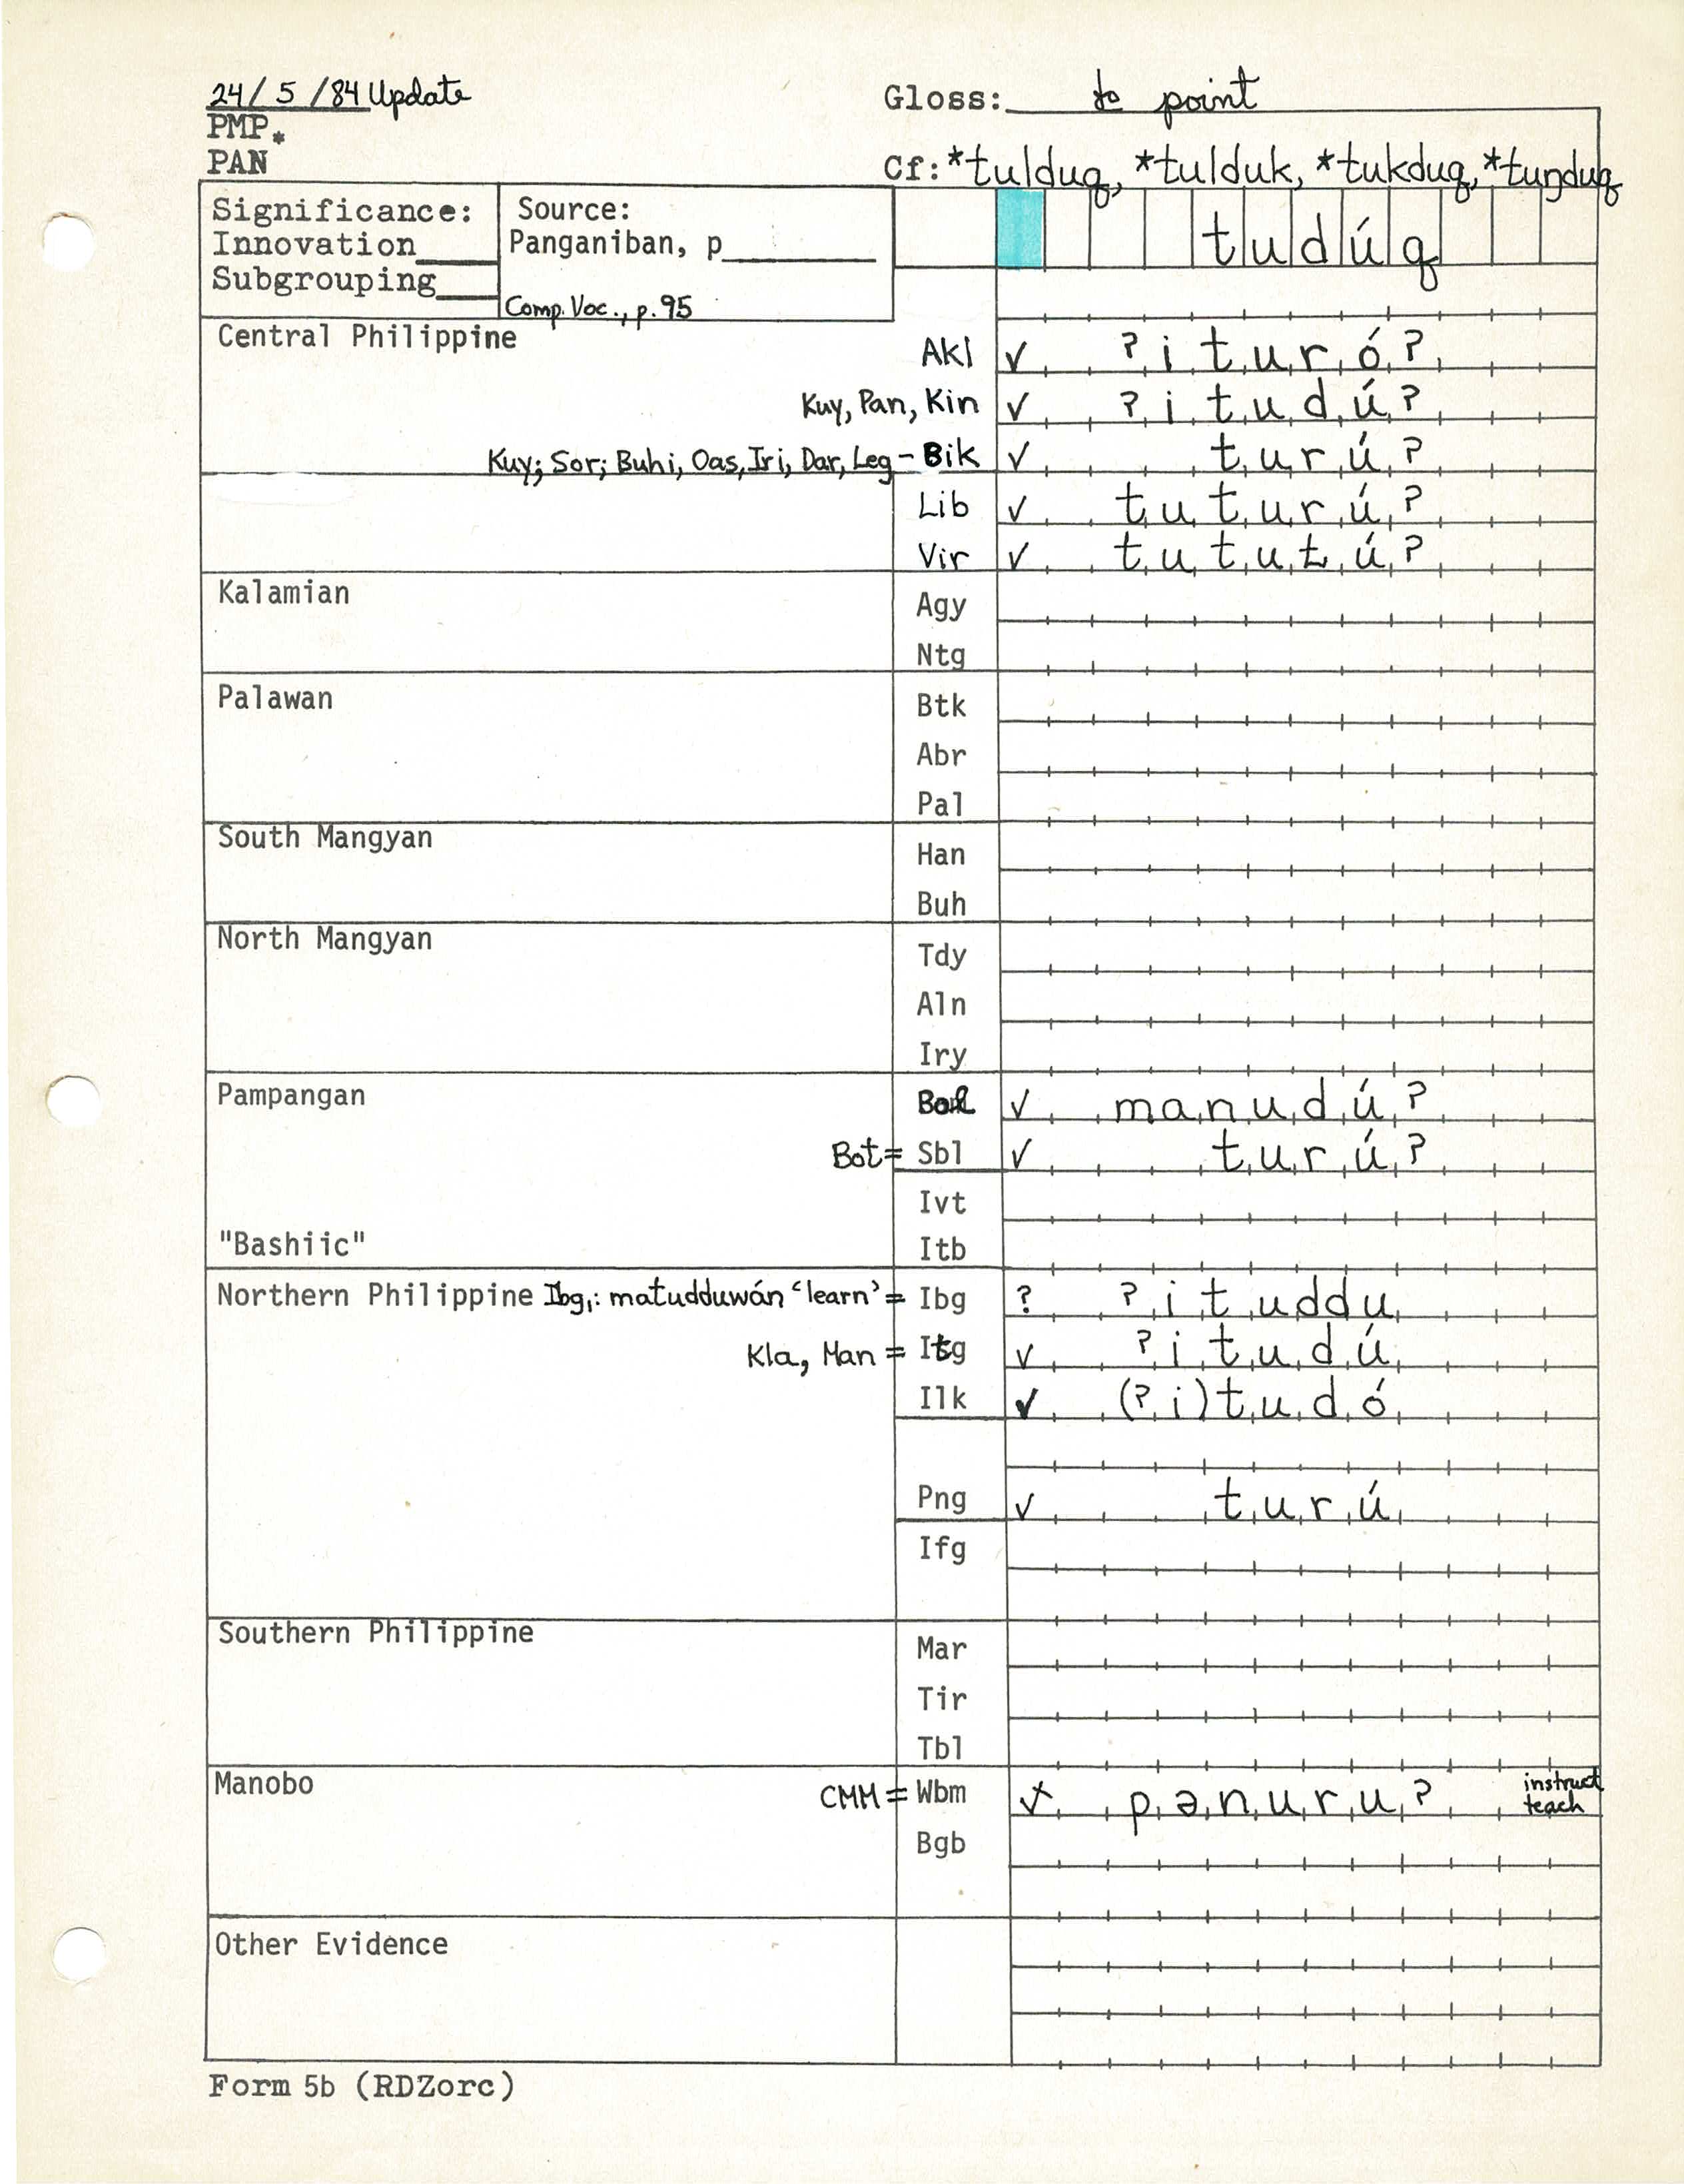 24/5/84 Update
Gloss: to point
PMP*
PAN
Cf: *tulduq, *tulduk, *tukduq, *tuŋduq
Significance:
Innovation
Subgrouping
Source:
Panganiban, p
Comp. Voc., p. 95
tudúq
Central Philippine
Akl ✓ ʔituróʔ
Kuy, Pan, Kin ✓ ʔitudúʔ
Kuy; Sor; Buhi, Oas, Iri, Dar, Leg - Bik ✓ turúʔ
Lib ✓ tuturúʔ
Vir ✓ tututúʔ
Kalamian
Agy
Ntg
Palawan
Btk
Abr
Pal
South Mangyan
Han
Buh
North Mangyan
Tdy
Aln
Iry
Pampangan
✓ manudúʔ
Bot = Sbl ✓ turúʔ
Ivt
"Bashiic" Itb
Northern Philippine Ibg₁: matudduwán ‘learn’ = Ibg ? ʔituddu
Kla, Man = Itg ✓ ʔitudú
Ilk ✓ (ʔi)tudó
Png ✓ turú
Ifg
Southern Philippine
Mar
Tir
Tbl
Manobo CMM = Wbm ✓ pənuruʔ instruct teach
Bgb
Other Evidence
Form 5b (RDZorc)